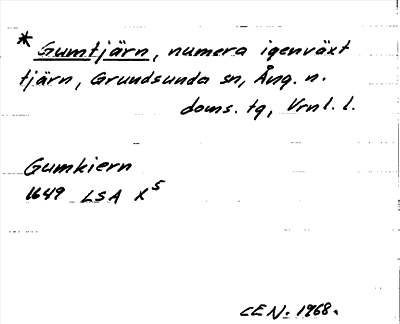 * Gumtjärn, numera igenväxt
tjärn, Grundsunda sn, Ång. n.
doms. tg, Vrnl. l.
Gumkiern
1649 LSA X5
CEN. 1968.